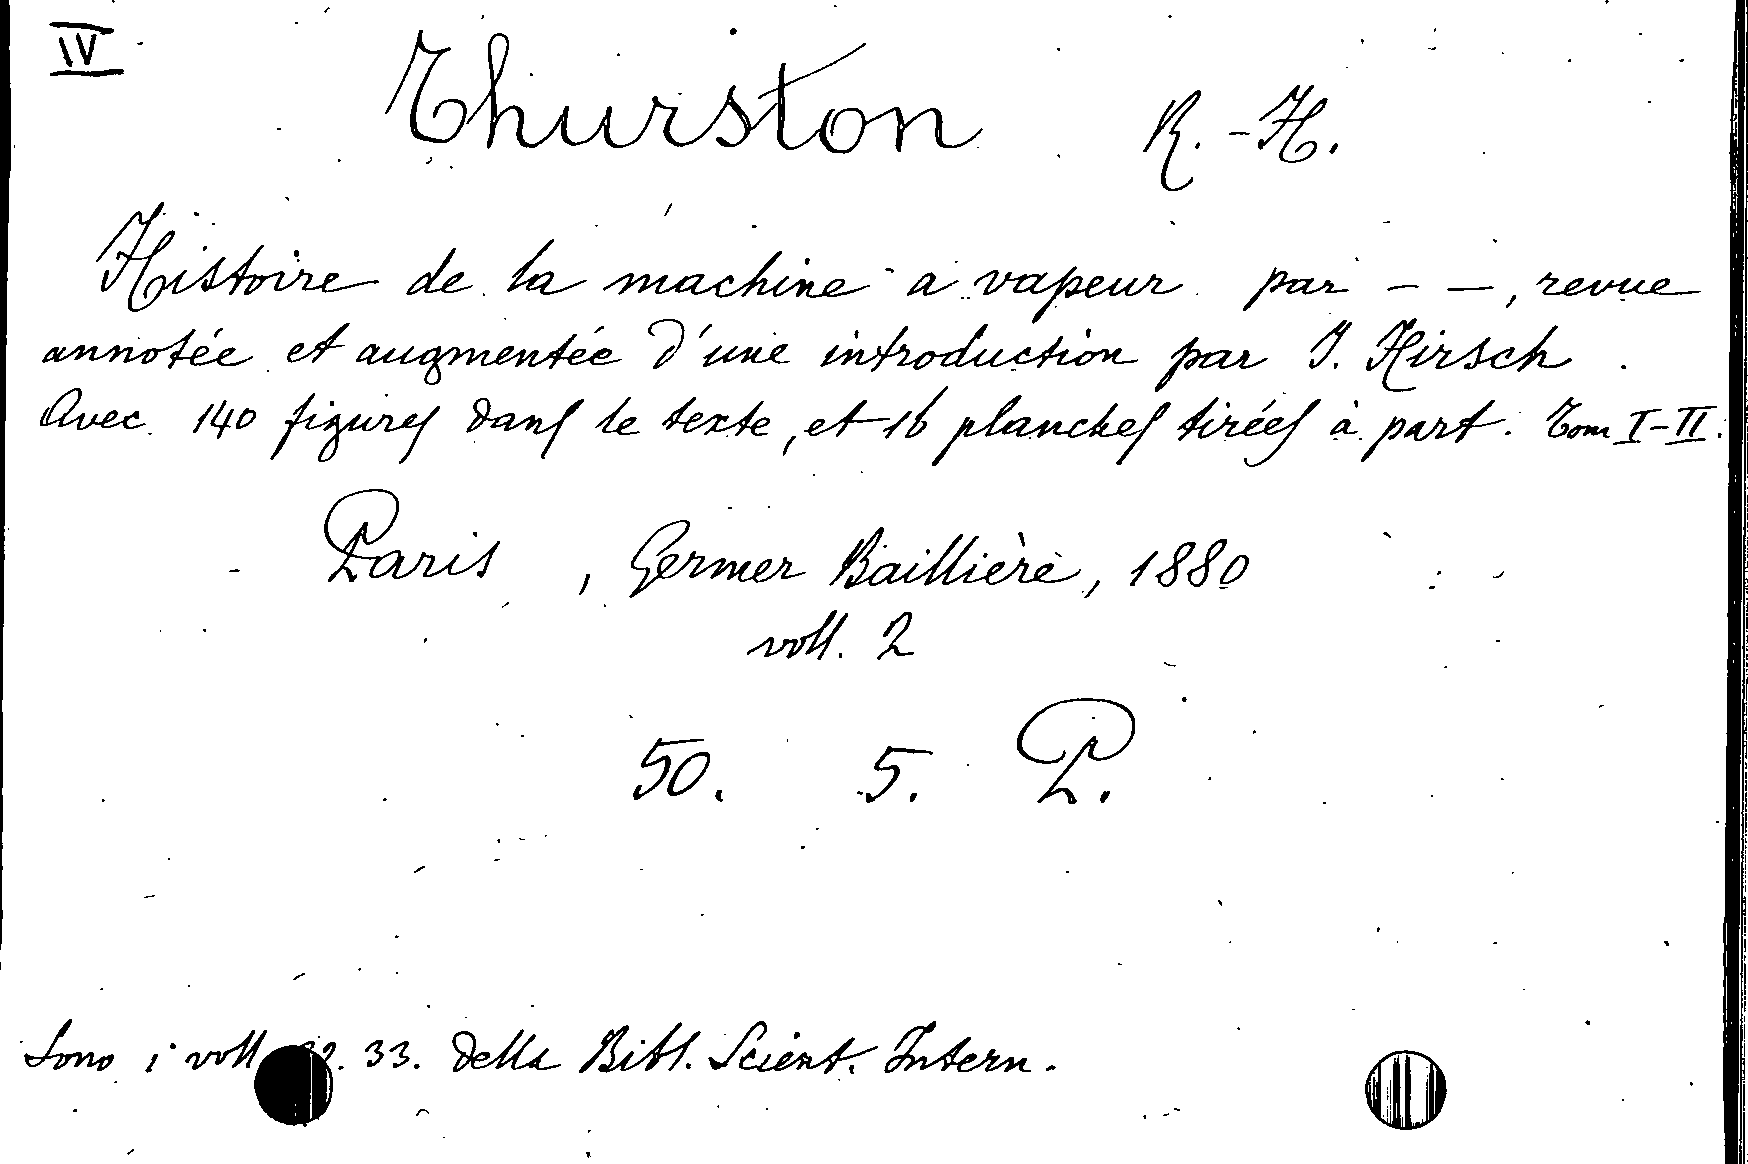 IV
Thurston R.-H.
Histoire de la machine a vapeur par - -, revue
annotée et augmentée d'une introduction par J. Hirsch.
Avec 140 figures dans le texte, et 16 planches tirées à part. Tom I-II.
Paris, Germer Baillière, 1880
voll. 2
50. 5. P.
Sono i voll. 33. della Bibl. Scient. Intern.